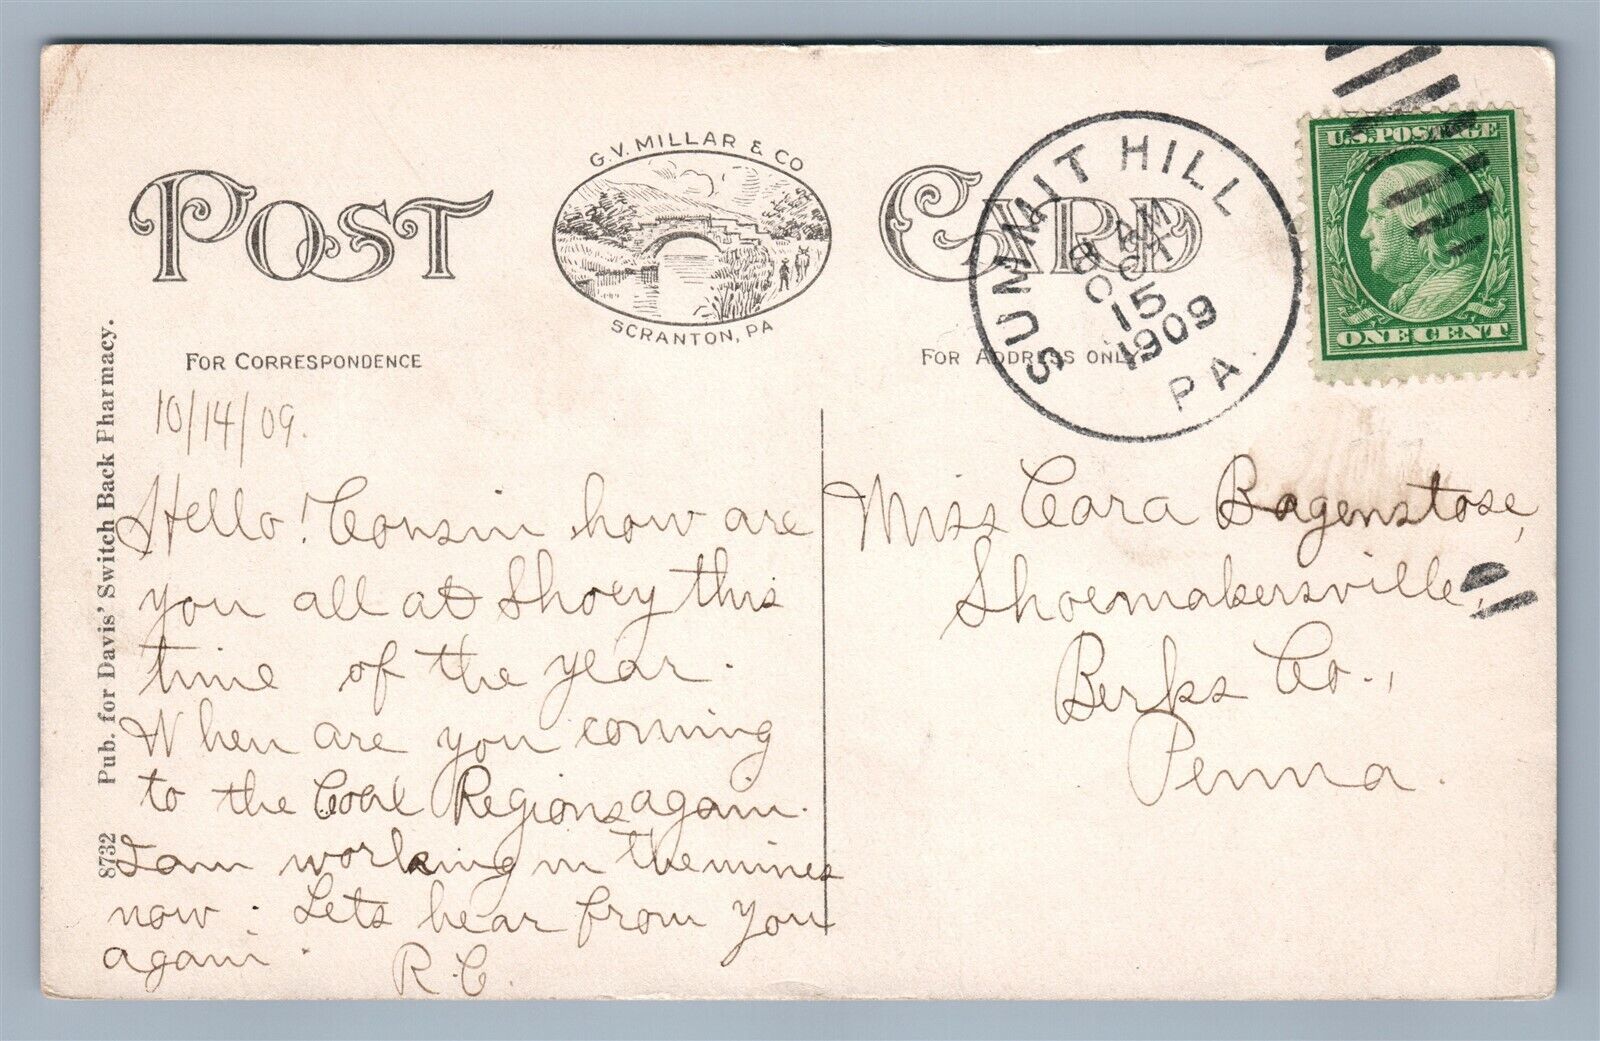 G.V. MILLAR & CO
SCRANTON, PA
POST CARD
FOR CORRESPONDENCE
FOR ADDRESS ONLY
SUMMIT HILL
8 AM
OCT
15
1909
PA.
U.S. POSTAGE
ONE CENT
8732 Pub. for Davis' Switch Back Pharmacy.
10/14/09.
Hello! Cousin how are
you all at Shoey this
time of the year.
When are you coming
to the Coal Regions again.
I am working in the mines
now. Lets hear from you
again.
R.C.
Miss Cora Bagenstose,
Shoemakersville,
Berks Co.,
Penna.